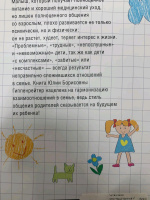 Малыш, который получает полноценное
питание и хороший медицинский уход,
но лишен полноценного общения
со взрослым, плохо развивается не только
психически, но и физически:
он не растет, худеет, теряет интерес к жизни.
«Проблемные», «трудные», «непослушные»
и «невозможные» дети, так же как дети
«с комплексами», «забитые» или
«несчастные» — всегда результат
неправильно сложившихся отношений
в семье. Книга Юлии Борисовны
Гиппенрейтер нацелена на гармонизацию
взаимоотношений в семье, ведь стиль
общения родителей сказывается на будущем
их ребенка!